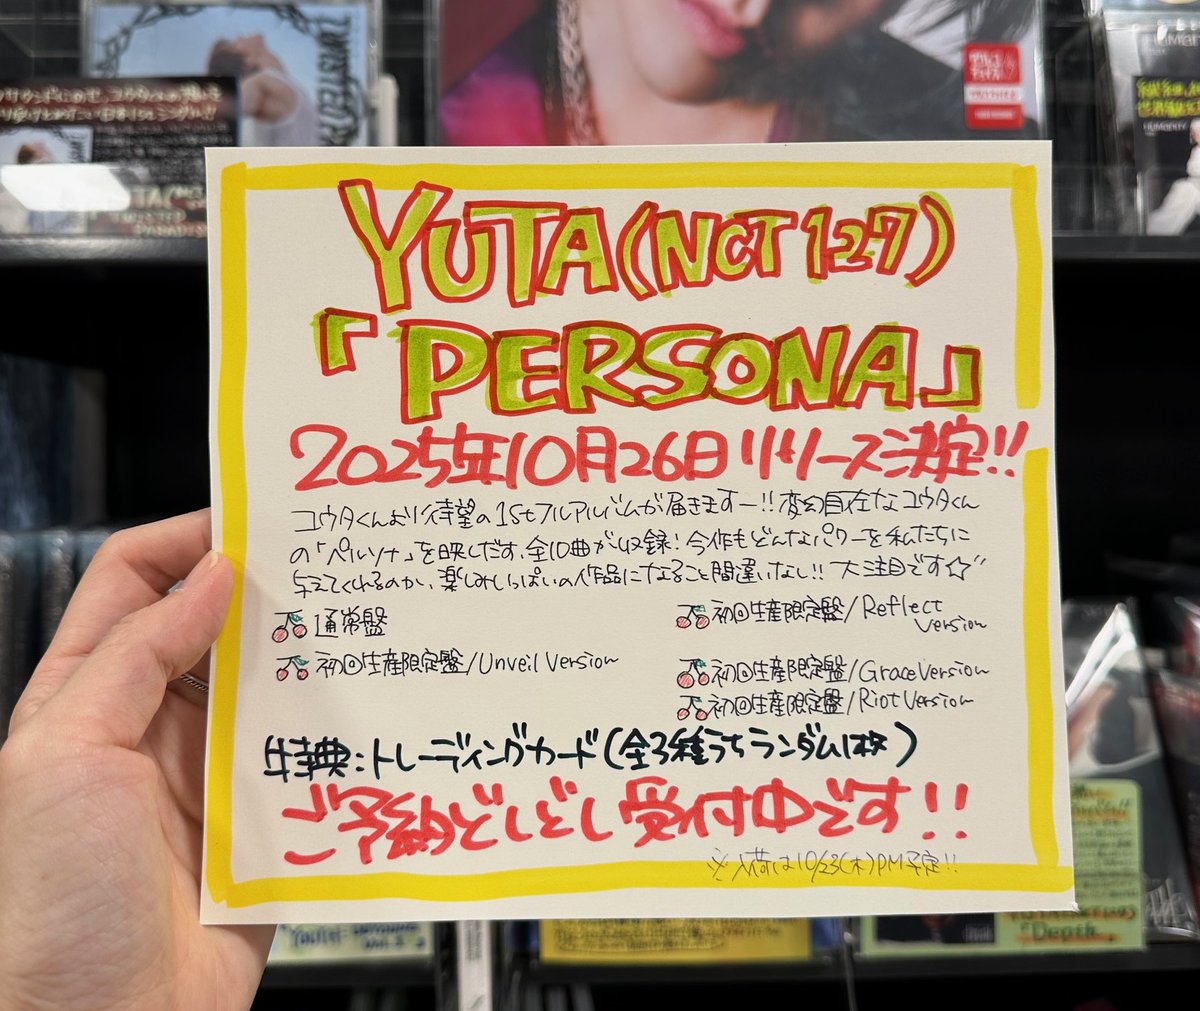 YUTA(NCT 127)
「PERSONA」
2025年10月26日リリース決定!!
ユウタくんより待望の1stフルアルバムが届きますー!!変幻自在なユウタくん
の「ペルソナ」を映しだす、全10曲が収録!今作もどんなパワーを私たちに
与えてくれるのか、楽しみいっぱいの作品になること間違いなし!!大注目です☆"
通常盤
初回生産限定盤/Reflect Version
初回生産限定盤/Unveil Version
初回生産限定盤/Grace Version
初回生産限定盤/Riot Version
特典:トレーディングカード(全3種うちランダム1枚)
ご予約どしどし受付中です!!
※入荷は10/23(木)PM予定!!
Depth